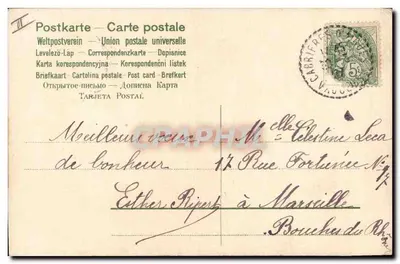 Postkarte – Carte postale
Weltpostverein – Union postale universelle
Levelező-Lap – Correspondenzkarte – Dopisnice
Karta korespondencyjna – Korespondenční lístek
Briefkaart – Cartolina postale – Post card – Brefkort
Открытое письмо – Дописна Карта
Tarjeta Postal
CABRIERES D'
VAUCLUSE
5
Meilleurs vœux
de bonheur
Esther Ripert
Melle Célestine Leca
17 Rue Fortunée No 17
à Marseille
Bouches du Rhône